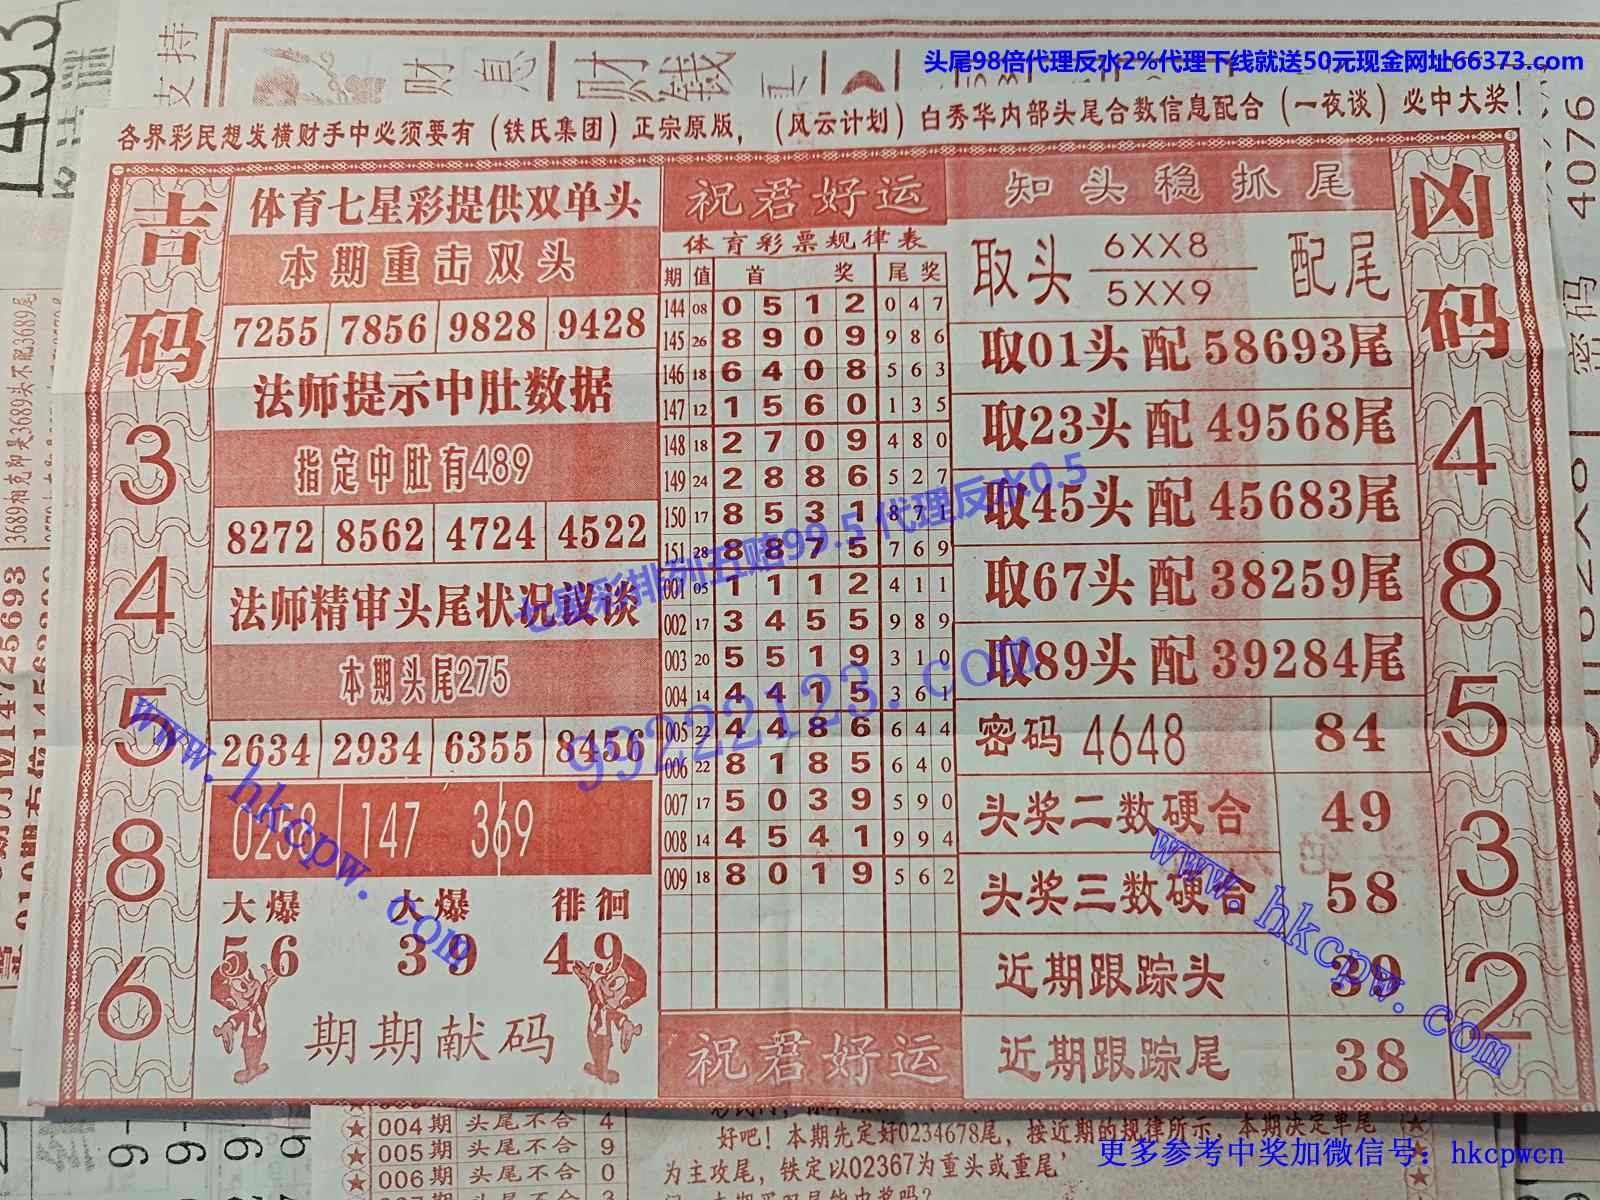 头尾98倍代理反水2%代理下线就送50元现金网址66373.com
各界彩民想发横财手中必须要有（铁氏集团）正宗原版，（风云计划）白秀华内部头尾合数信息配合（一夜谈）必中大奖！
吉码
3
4
5
8
6
体育七星彩提供双单头
本期重击双头
7255 7856 9828 9428
法师提示中肚数据
指定中肚有489
8272 8562 4724 4522
法师精审头尾状况议谈
本期头尾275
2634 2934 6355 8456
0258 147 369
大爆 大爆 徘徊
56 39 49
期期献码
祝君好运
体育彩票规律表
期 值 首 奖 尾 奖
144 08 0 5 1 2 0 4 7
145 26 8 9 0 9 9 8 6
146 18 6 4 0 8 5 6 3
147 12 1 5 6 0 1 3 5
148 18 2 7 0 9 4 8 0
149 24 2 8 8 6 5 2 7
150 17 8 5 3 1 8 7 1
151 28 8 8 7 5 7 6 9
001 05 1 1 1 2 4 1 1
002 17 3 4 5 5 9 8 9
003 20 5 5 1 9 3 1 0
004 14 4 4 1 5 3 6 1
005 22 4 4 8 6 6 4 4
006 22 8 1 8 5 6 4 0
007 17 5 0 3 9 5 9 0
008 14 4 5 4 1 9 9 4
009 18 8 0 1 9 5 6 2
祝君好运
知头稳抓尾
取头 6XX8 配尾
5XX9
取01头 配 58693尾
取23头 配 49568尾
取45头 配 45683尾
取67头 配 38259尾
取89头 配 39284尾
密码 4648 84
头奖二数硬合 49
头奖三数硬合 58
近期跟踪头 39
近期跟踪尾 38
凶码
4
8
5
3
2
七星彩排列五赔99.5 代理反水0.5
99222123.com
www.hkcpw.com
www.hkcpw.com
004期 头尾不合 4
005期 头尾不合 9
006期 头尾不合 0
好吧！本期先定好0234678尾，按近期的规律所示，本期决定单尾
为主攻尾，铁定以02367为重头或重尾
更多参考中奖加微信号：hkcpwcn
493
支持
财息
密码 4076